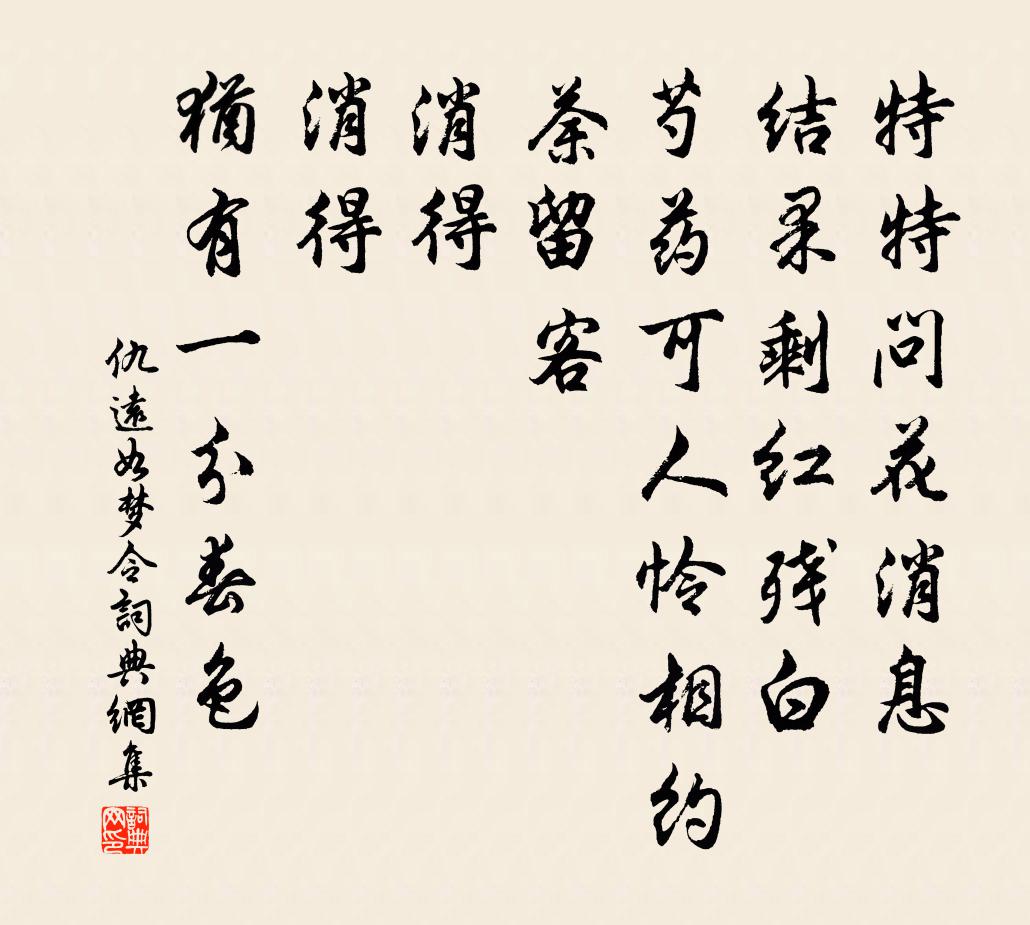 特特问花消息
结柔剩红残白
芍药可人怜相约
荼留客
消得
消得
猶有一分春色
仇遠如梦令詞典網集
詞典网印